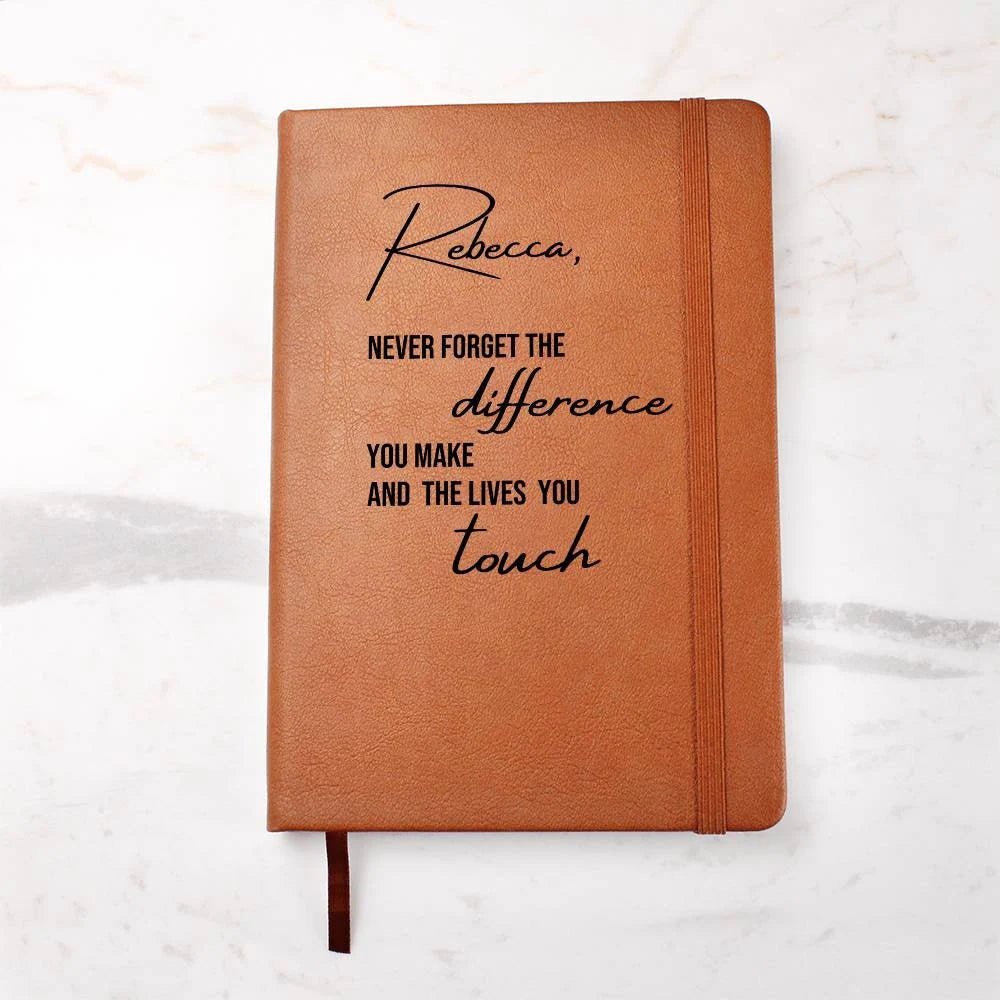 Rebecca,
NEVER FORGET THE
difference
YOU MAKE
AND THE LIVES YOU
touch